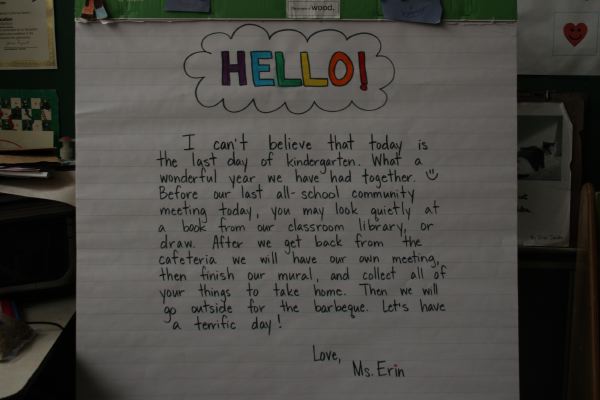 wood.
HELLO!
I can't believe that today is
the last day of kindergarten. What a
wonderful year we have had together.
Before our last all-school community
meeting today, you may look quietly at
a book from our classroom library, or
draw. After we get back from the
cafeteria we will have our own meeting,
then finish our mural, and collect all of
your things to take home. Then we will
go outside for the barbeque. Let's have
a terrific day!
Love,
Ms. Erin